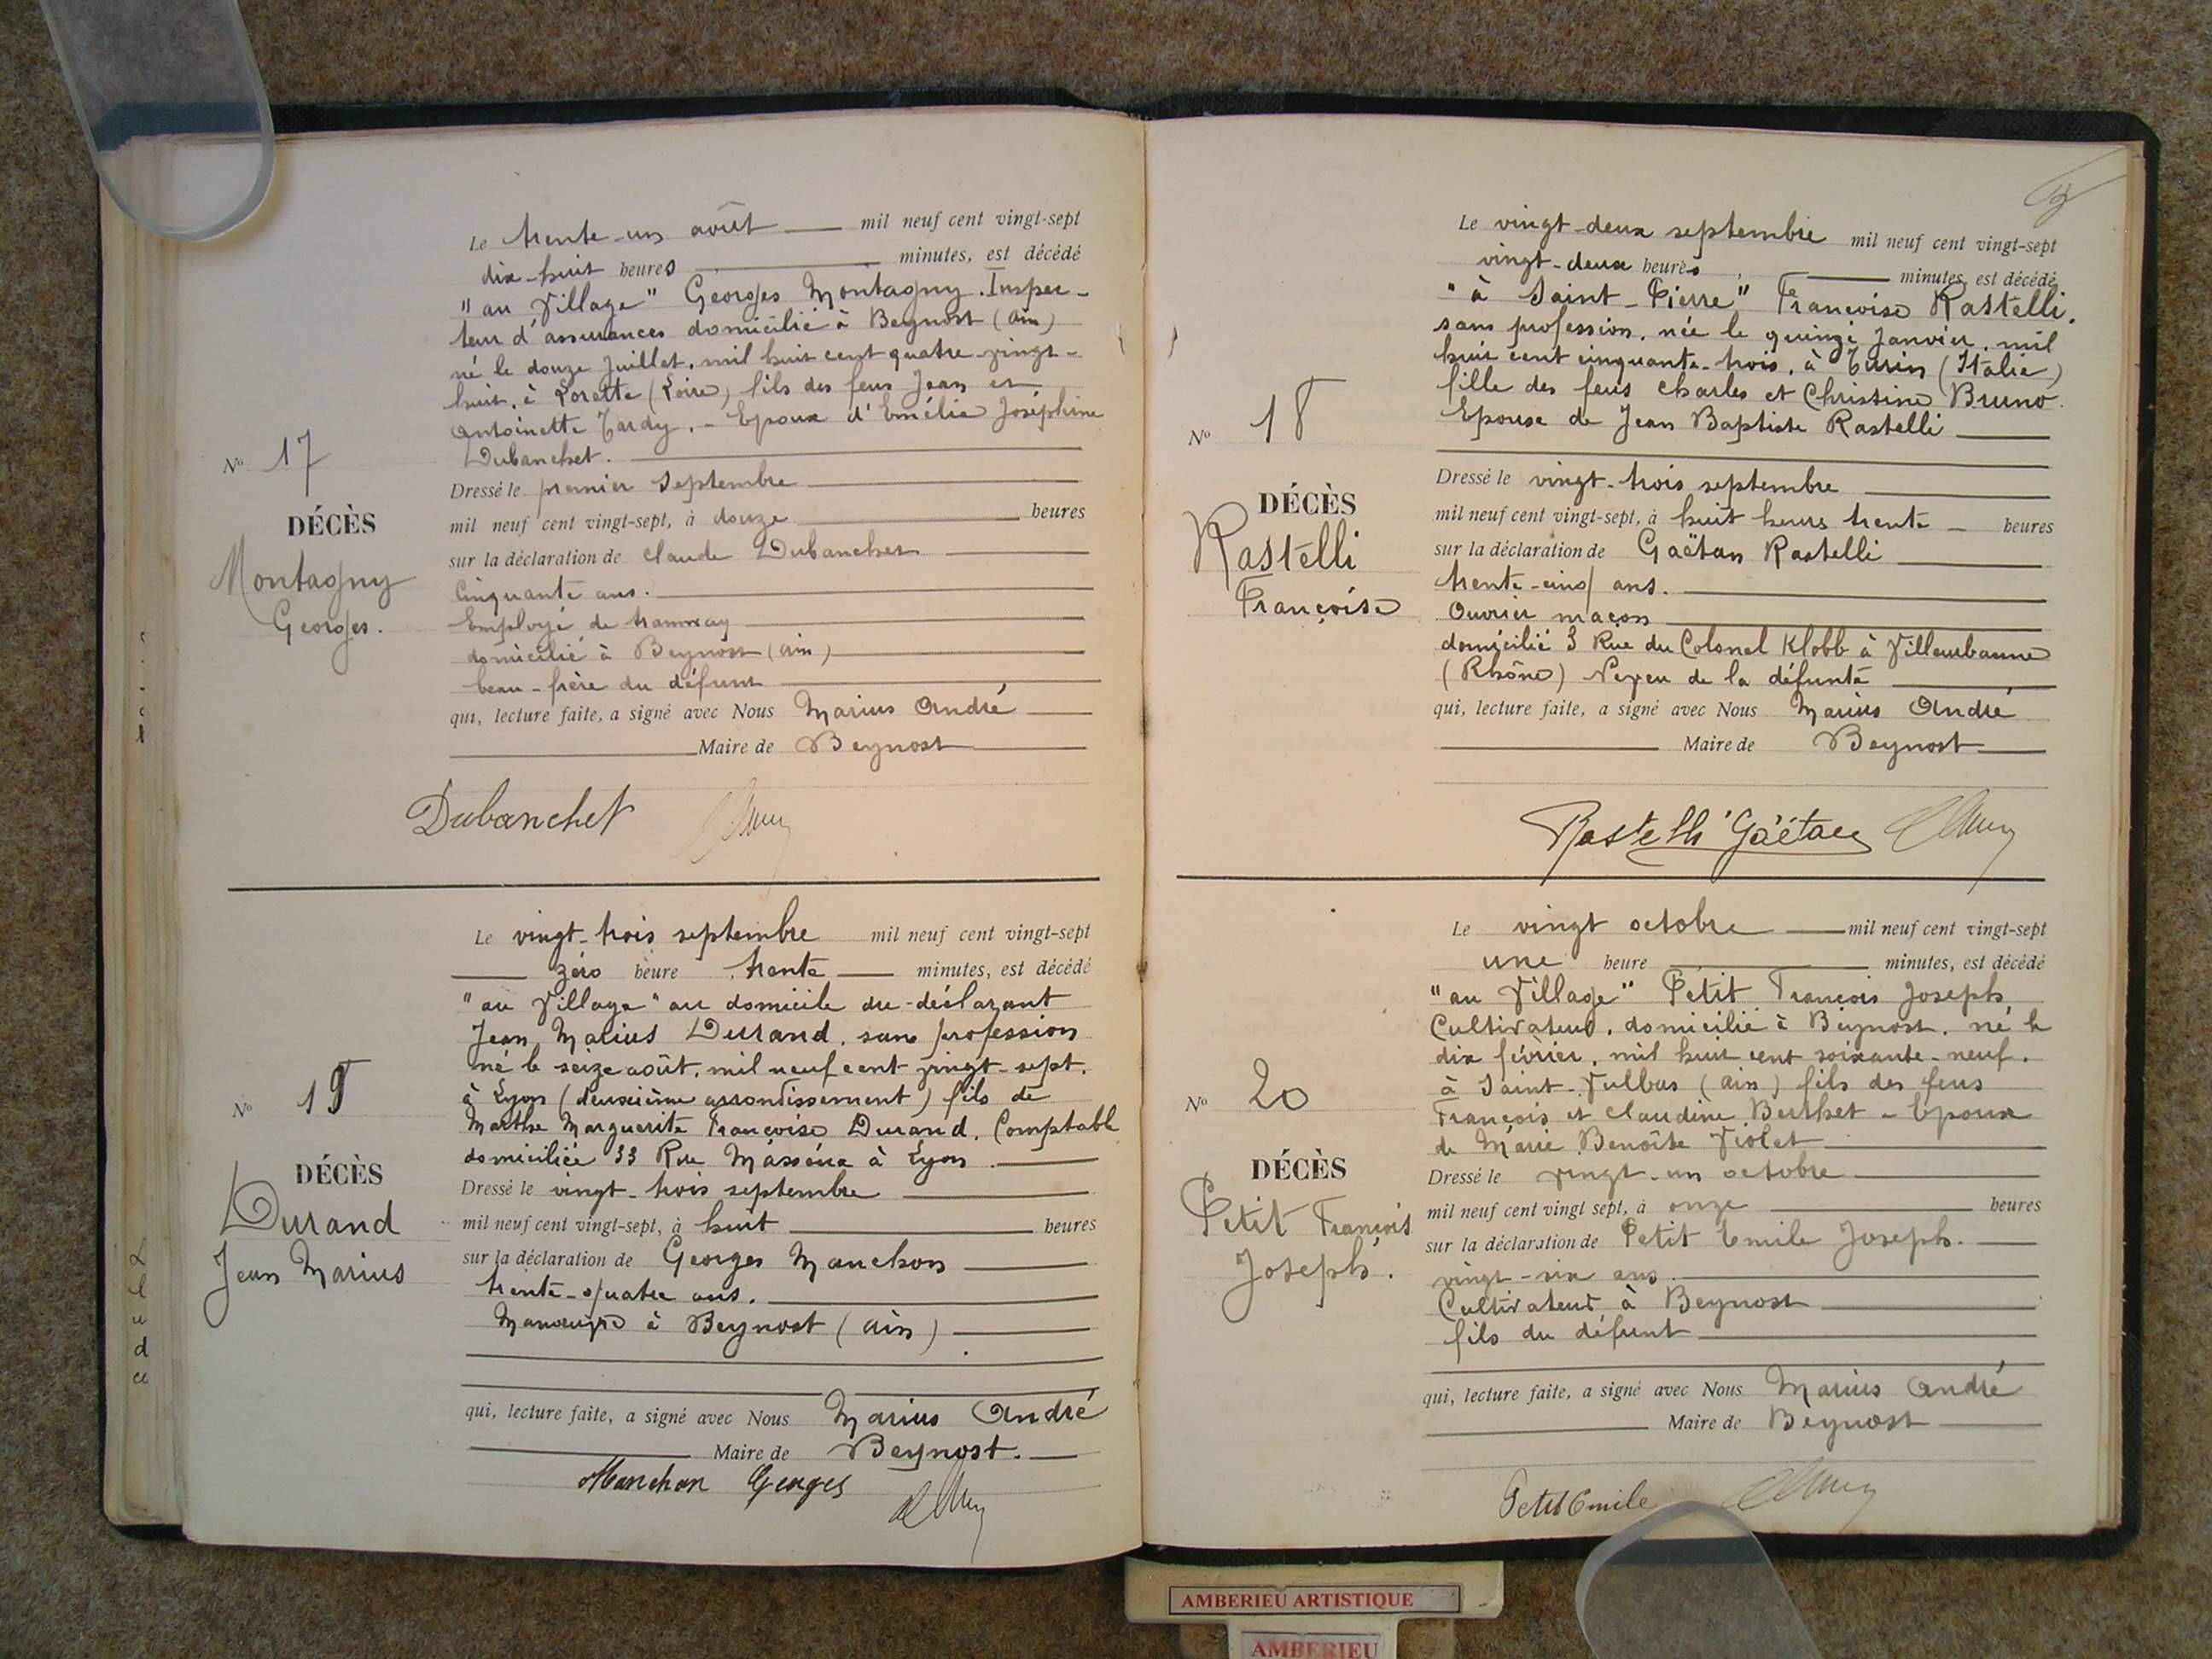 Le trente-un août mil neuf cent vingt-sept
dix-huit heures minutes, est décédé
"au Village" Georges Montagny. Inspec-
teur d'assurances domicilié à Beynost (Ain)
né le douze Juillet, mil huit cent quatre-vingt-
huit, à Lorette (Loire) fils des feus Jean et
Antoinette Tardy. - Epoux d'Emélie Joséphine
Dubanchet.
N° 17
DÉCÈS
Montagny
Georges.
Dressé le premier Septembre
mil neuf cent vingt-sept, à douze heures
sur la déclaration de Claude Dubanchet
Cinquante ans.
Employé de tramway
domicilié à Beynost (Ain)
beau-frère du défunt
qui, lecture faite, a signé avec Nous Marius André
Maire de Beynost
Dubanchet
Le vingt-trois septembre mil neuf cent vingt-sept
zéro heure trente minutes, est décédé
"au Village" au domicile du déclarant
Jean Marius Durand, sans profession
né le seize août, mil neuf cent vingt-sept.
à Lyon (deuxième arrondissement) fils de
Marthe Marguerite Françoise Durand. Comptable
domiciliée 33 Rue Masséna à Lyon.
N° 19
DÉCÈS
Durand
Jean Marius
Dressé le vingt-trois septembre
mil neuf cent vingt-sept, à huit heures
sur la déclaration de Georges Manchon
trente-quatre ans.
Manœuvre à Beynost (Ain)
qui, lecture faite, a signé avec Nous Marius André
Maire de Beynost.
Manchon Georges
Le vingt-deux septembre mil neuf cent vingt-sept
vingt-deux heures minutes, est décédé
"à Saint-Pierre" Françoise Rastelli.
sans profession, née le quinze Janvier, mil
huit cent cinquante-trois, à Turin (Italie)
fille des feus Charles et Christine Bruno.
Epouse de Jean Baptiste Rastelli
N° 18
DÉCÈS
Rastelli
Françoise
Dressé le vingt-trois septembre
mil neuf cent vingt-sept, à huit heures trente heures
sur la déclaration de Gaëtan Rastelli
trente-cinq ans.
Ouvrier maçon
domicilié 3 Rue du Colonel Klobb à Villeurbanne
(Rhône) Neveu de la défunte
qui, lecture faite, a signé avec Nous Marius André
Maire de Beynost
Rastelli Gaëtan
Le vingt octobre mil neuf cent vingt-sept
une heure minutes, est décédé
"au Village" Petit François Joseph,
Cultivateur, domicilié à Beynost. né le
dix février, mil huit cent soixante-neuf.
à Saint-Vulbas (Ain) fils des feus
François et Claudine Berthet - Epoux
de Marie Benoîte Violet
N° 20
DÉCÈS
Petit François
Joseph.
Dressé le vingt-un octobre
mil neuf cent vingt sept, à onze heures
sur la déclaration de Petit Emile Joseph.
vingt-six ans.
Cultivateur à Beynost
fils du défunt
qui, lecture faite, a signé avec Nous Marius André
Maire de Beynost
Petit Emile
AMBERIEU ARTISTIQUE
AMBERIEU